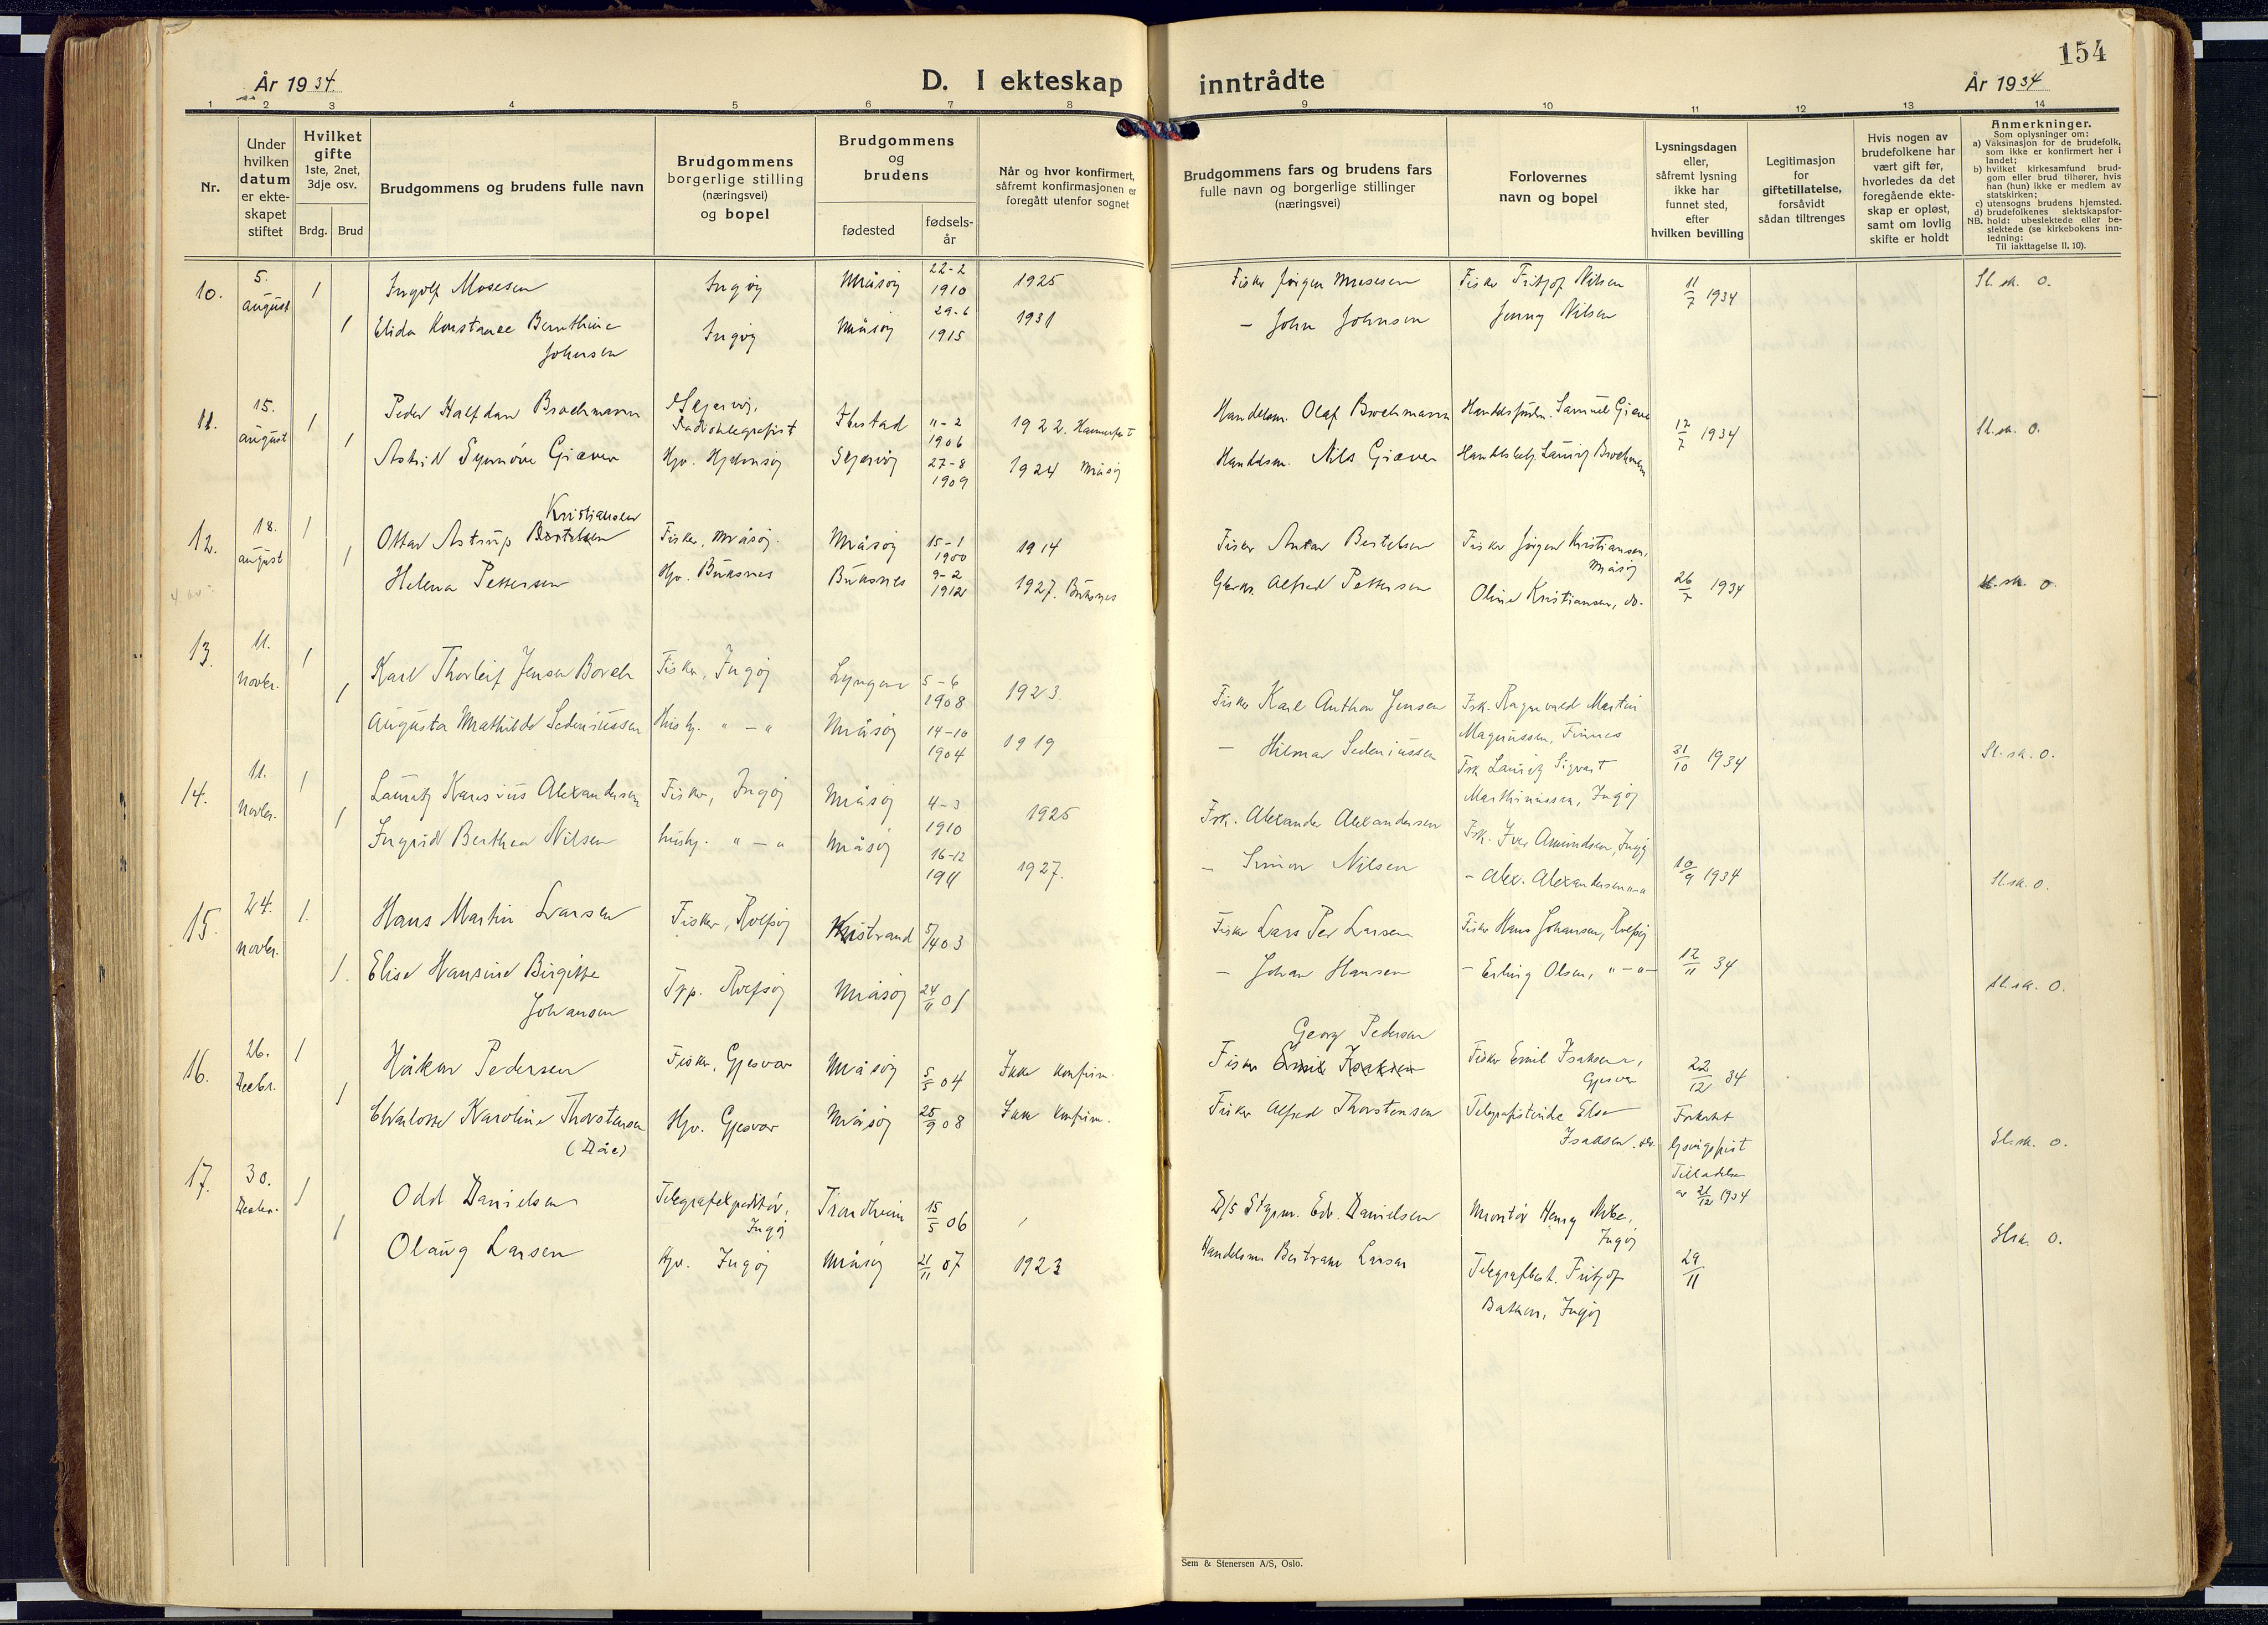 154
År 1934.
D. I ekteskap inntrådte
År 1934
1 2 3 4 5 6 7 8 9 10 11 12 13 14
Nr.
Under
hvilken
datum
er ekte-
skapet
stiftet
Hvilket
gifte
1ste, 2net,
3dje osv.
Brdg. Brud
Brudgommens og brudens fulle navn
Brudgommens
borgerlige stilling
(næringsvei)
og bopel
Brudgommens
og
brudens
fødested
fødsels-
år
Når og hvor konfirmert,
såfremt konfirmasjonen er
foregått utenfor sognet
Brudgommens fars og brudens fars
fulle navn og borgerlige stillinger
(næringsvei)
Forlovernes
navn og bopel
Lysningsdagen
eller,
såfremt lysning
ikke har
funnet sted,
efter
hvilken bevilling
Legitimasjon
for
giftetillatelse,
forsåvidt
sådan tiltrenges
Hvis nogen av
brudefolkene har
vært gift før,
hvorledes da det
foregående ekte-
skap er opløst,
samt om lovlig
skifte er holdt
Anmerkninger.
Som oplysninger om:
a) Vaksinasjon for de brudefolk,
som ikke er konfirmert her i
landet;
b) hvilket kirkesamfund brud-
gom eller brud tilhører, hvis
han (hun) ikke er medlem av
statskirken;
c) utensogns brudens hjemsted.
d) brudefolkenes slektskapsfor-
NB. hold: ubeslektede eller be-
slektede (se kirkebokens inn-
ledning:
Til iakttagelse II. 10).
10. 5. august 1 Ingolf Mosesen Ingøy Måsøy 22-2 1910 1925 Fisker Jørgen Mosesen Fisker Fritjof Nilsen 11/7 1934 Sl.sk. 0.
1 Elida Konstance Bernthine Johnsen Ingøy Måsøy 29-6 1915 1931 – John Johnsen Jenny Nilsen
11. 15. august 1 Peder Halfdan Brochmann Skjervøy, Radiotelegrafist Ibestad 11-2 1906 1922. Hammerfest Handelsm. Olaf Brochmann Samuel Giæver 17/7 1934 Sl.sk. 0.
1 Astrid Synnøve Giæver Hjv. Hjelmsøy Skjervøy 27-8 1909 1924 Måsøy Handelsm. Nils Giæver Lauritz Brochmann
12. 18. august 1 Ottar Astrup Bertelsen Kristiansen Fisker, Måsøy. Måsøy 15-1 1900 1914 Fisker Anton Bertelsen Fisker Jørgen Kristiansen, Måsøy
1 Helena Pettersen Hjv. Buksnes Buksnes 9-2 1912 1927. Buksnes Alfred Pettersen Oline Kristiansen, do. 26/7 1934 Sl.sk. 0.
13. 11. novbr. 1 Karl Thorleif Jensen Borch Fisker, Ingøy Lyngen 5-6 1908 1923. Fisker Karl Anthon Jensen Fsk. Ragnvald Martin Magnussen, Finnes
1 Augusta Mathilde Sedeniussen Husby. " – " Måsøy 14-10 1904 1919 – Hilmar Sedeniussen Fsk. Lauritz Sigvart Marthinussen, Ingøy 31/10 1934 Sl.sk. 0.
14. 11. novbr. 1 Lauritz Alexandersen Fisker, Ingøy Måsøy 4-3 1910 1925 Fsk. Alexander Alexandersen Fsk. Iver Amundsen, Ingøy
1 Ingrid Berthea Nilsen husby. " – " Måsøy 16-12 1911 1927. – Simon Nilsen – Alex. Alexandersen " – " 10/9 1934 Sl.sk. 0.
15. 24. novbr. 1. Hans Martin Larsen Fisker, Rolfsøy Kistrand 5/4 03 Fisker Lars Per Larsen Fisker Hans Johansen, Rolfsøy
1. Elise Hansine Birgitte Johansen Tpp. Rolfsøy Måsøy 24/11 01 – Johan Hansen – Erling Olsen, " – " – 12/11 34 Sl.sk. 0.
16. 26. Decbr. 1 Håkon Pedersen Fisker, Gjesvær Måsøy 5/5 04 Ikke konfirm. Fisker Emil Isaksen Georg Pedersen Fisker Emil Isaksen, Gjesvær 22/12 34
1 Charlotte Karoline Thorstensen (Dåe) Hjv. Gjesvær Måsøy 25/9 08 Ikke konfirm. Fisker Alfred Thorstensen Telegrafistinde Else Isaksen. do. Forkortet lysningsfrist Tilladelse av 21/12 1934 Sl.sk. 0.
17. 30. Decbr. 1 Odd Danielsen Telegrafekspeditør, Ingøy Trondheim 15/5 06 D/s Styrm. Edv. Danielsen Montør Henry Ingøy
1 Olaug Larsen Hjv. Ingøy Måsøy 21/11 07 1923 Handelsm. Bertram Larsen Telegrafbest. Fritjof Bakken, Ingøy 29/11 Sl.sk. 0.
Sem & Stenersen A/S, Oslo.